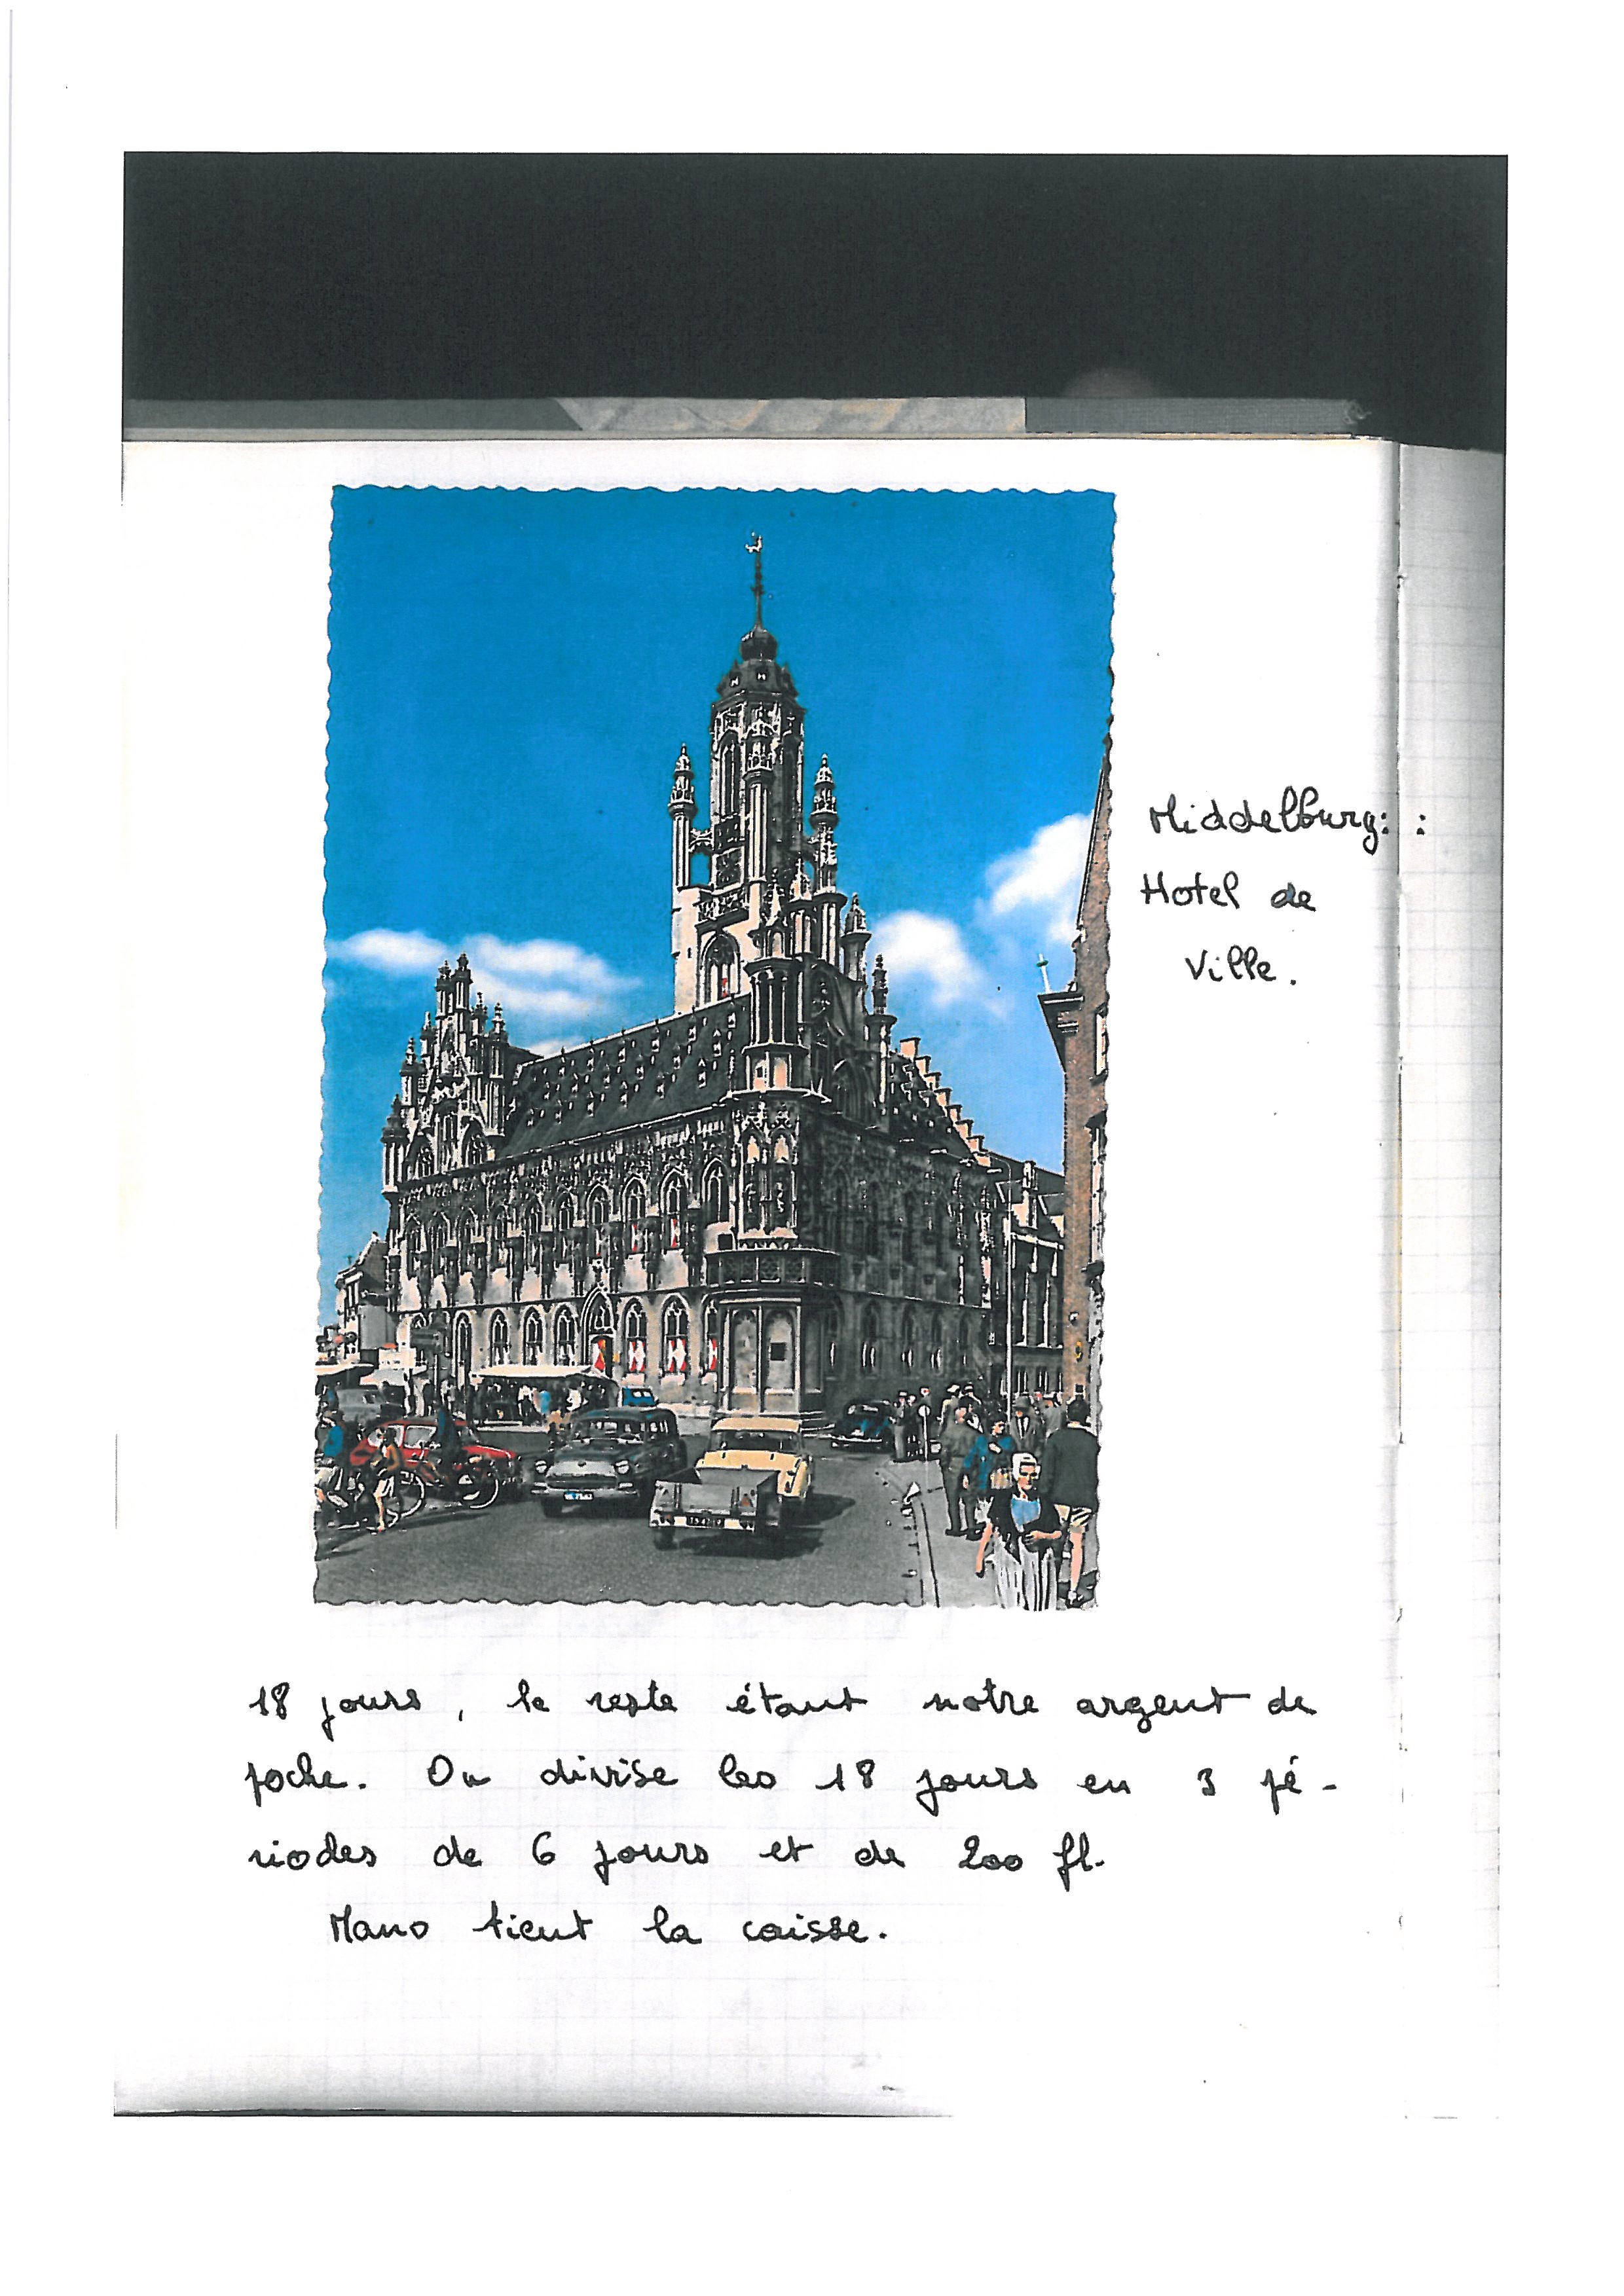 Middelburg:
Hotel de
Ville.
18 jours, le reste étant notre argent de
poche. On divise les 18 jours en 3 pé-
riodes de 6 jours et de 200 fl.
Mano tient la caisse.